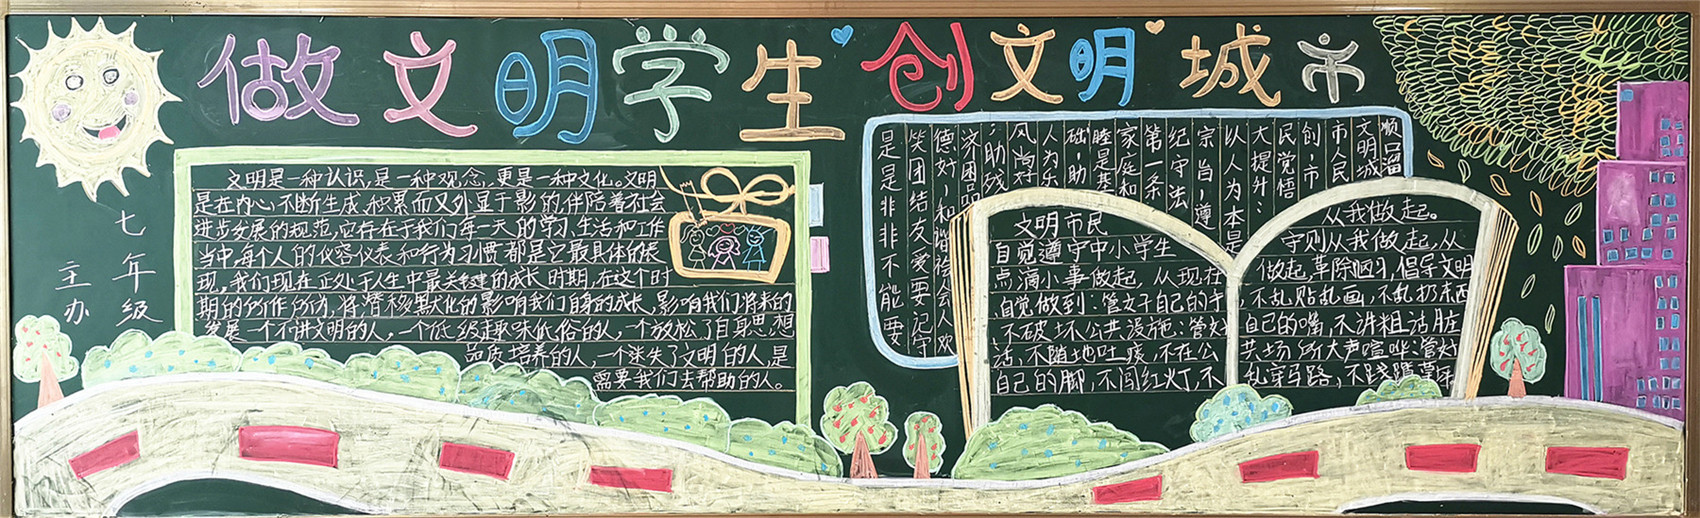 做文明学生创文明城市
七年级
主办
文明是一种认识,是一种观念,更是一种文化。文明
是在内心,不断生成、积累而又外显于影的,伴陪着社会
进步发展的规范,它存在于我们每一天的学习、生活和工作
当中,每个人的仪容仪表和行为习惯都是它最具体的表
现,我们现在正处于人生中最关键的成长时期,在这个时
期的所作所为,将潜移默化的影响我们自身的成长,影响我们将来的
发展一个不讲文明的人,一个低级趣味低俗的人,一个放松了自身思想
品质培养的人,一个迷失了文明的人,是
需要我们去帮助的人。
顺口溜
文明城
市人民
创,市
民觉悟
大提升:
以人为本是
宗旨,遵
纪守法
第一条
家庭和
睦是基
础,助
人为乐
风尚好
,助残
济困品
德好,和谐社会人欢
笑团结友爱要记守
是是非非不能要
文明市民
自觉遵守中小学生
点滴小事做起,从现在
自觉做到:管之于自己的手
不破坏公共设施:管好
洁,不随地吐痰,不在公
自己的脚,不闯红灯,不
从我做起。
守则从我做起,从
做起,革除陋习,倡导文明
,不乱贴乱画,不乱扔东西
自己的嘴,不讲粗话脏
共场所大声喧哗:管好
乱穿马路,不践踏